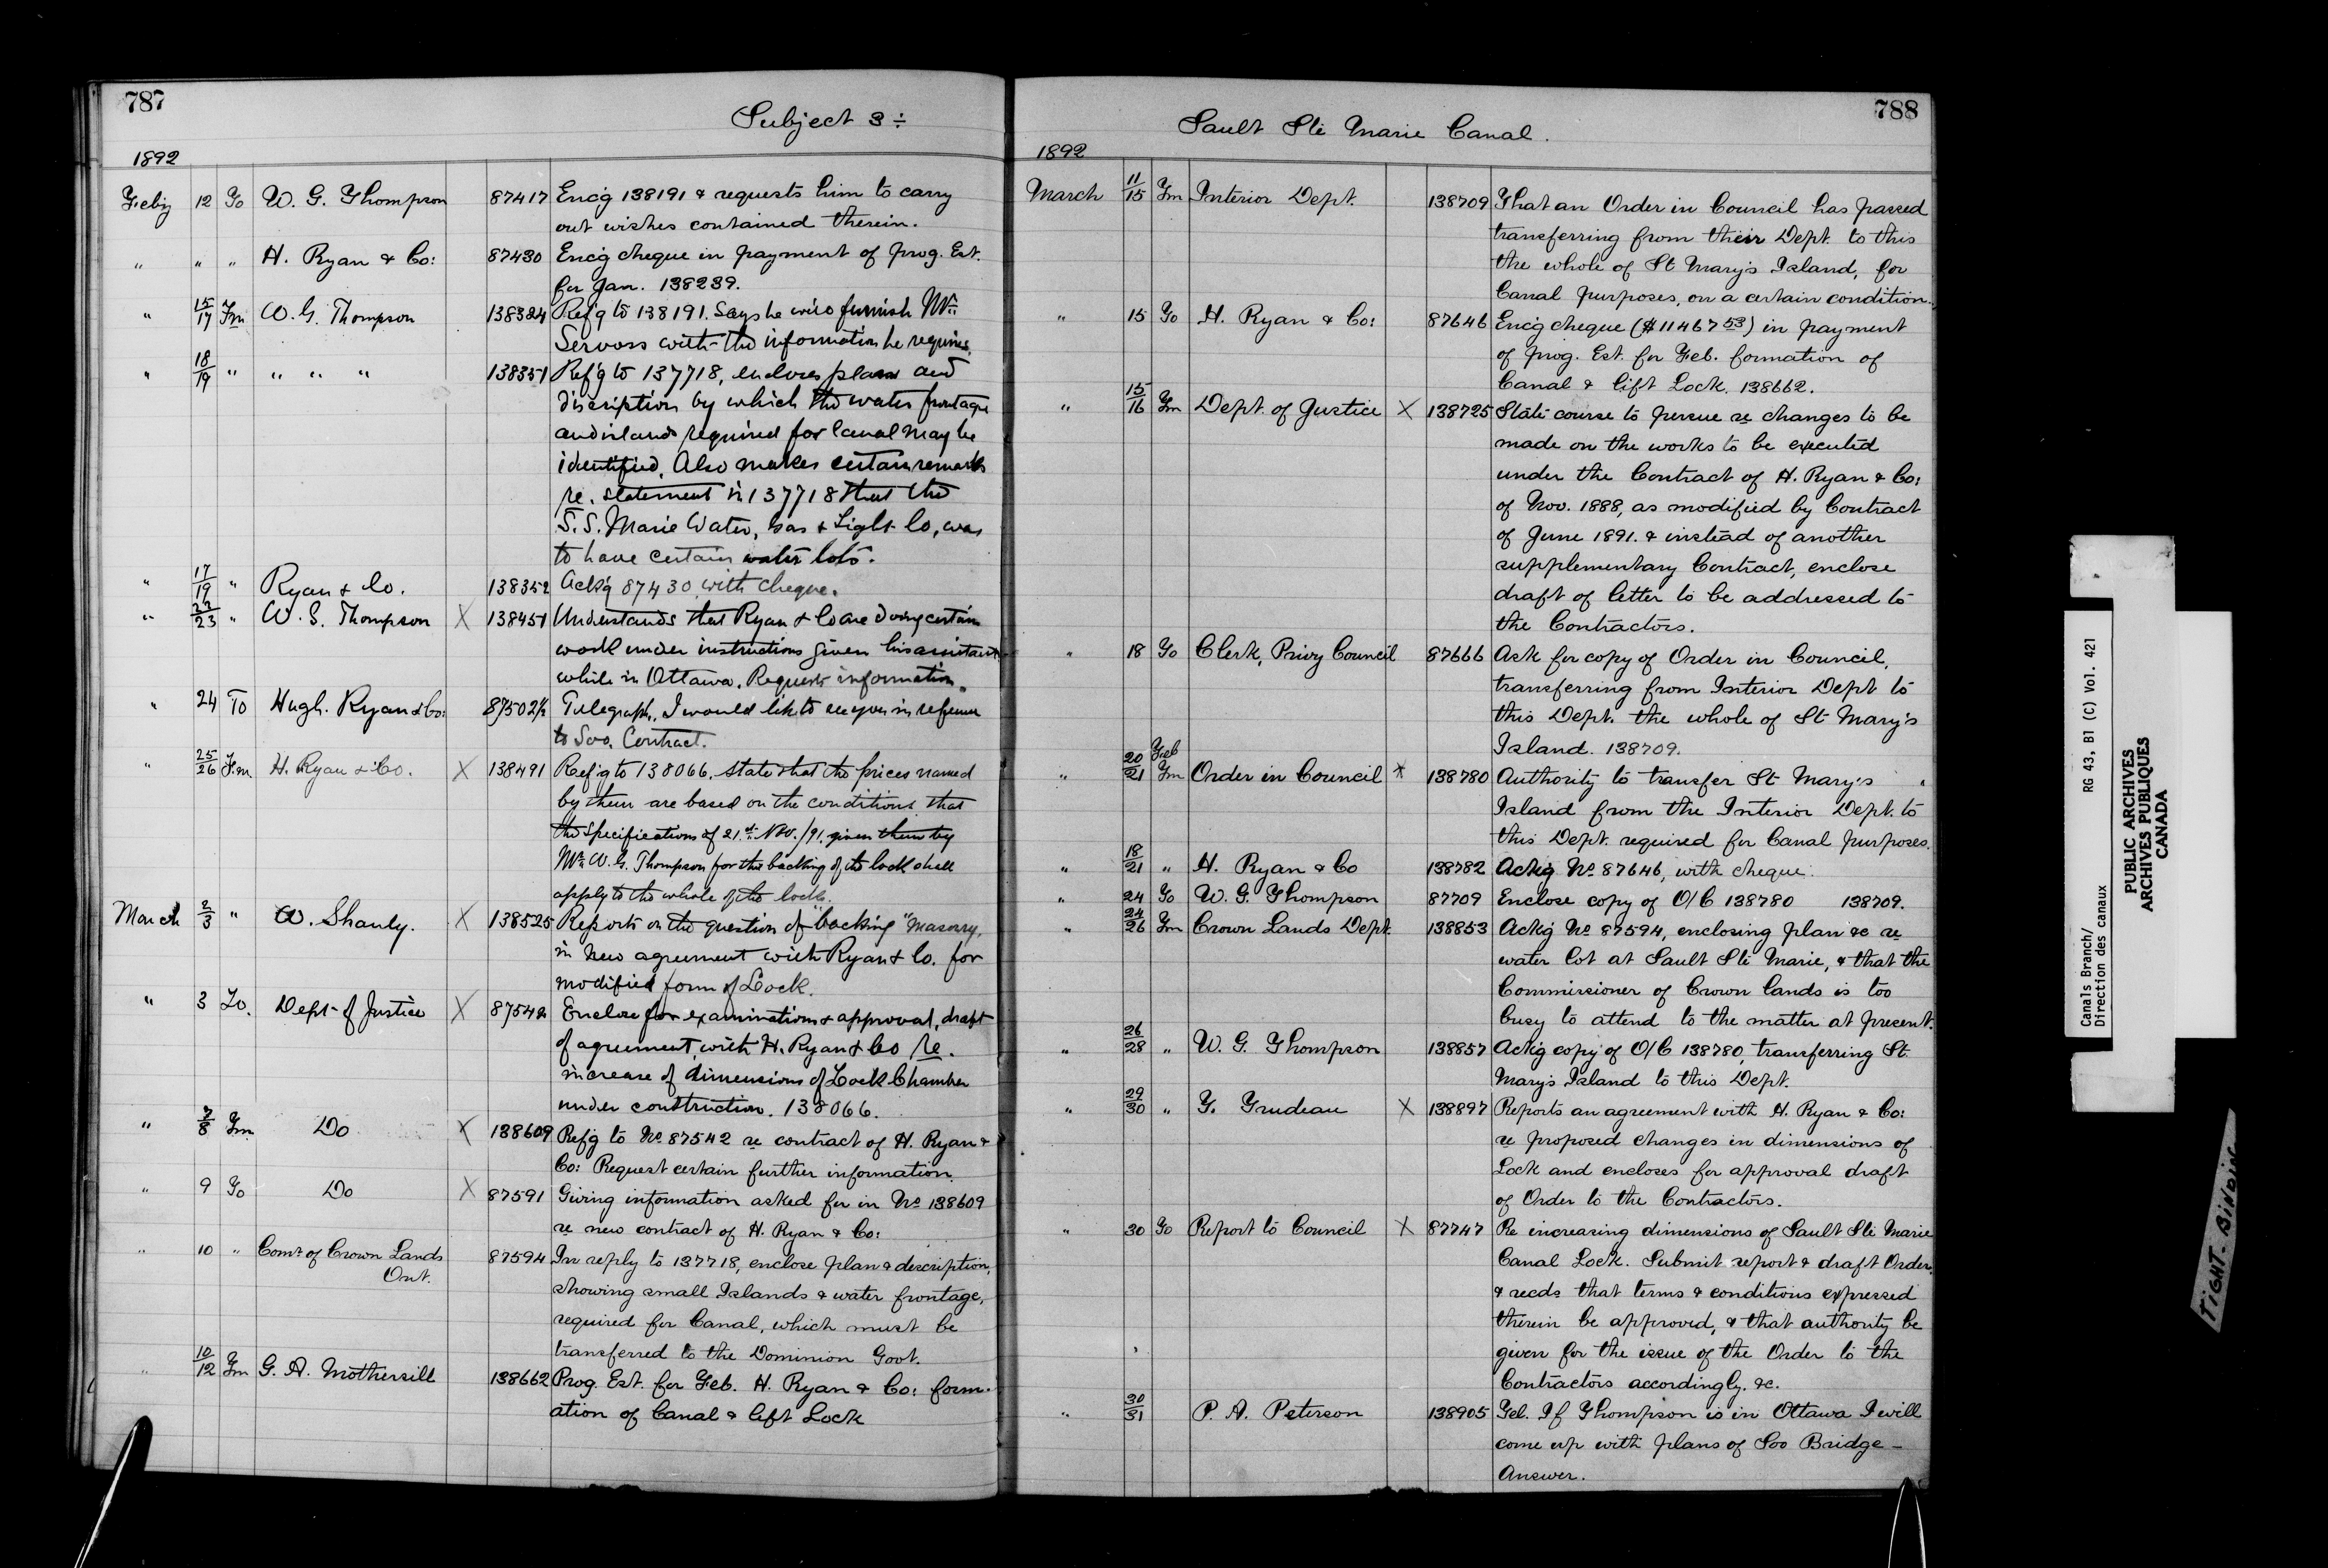 787
Subject 3 ÷
1892
Feby 12 To W. G. Thompson 87417 Enc'g 138191 & requests him to carry
out wishes contained therein.
" " " H. Ryan & Co: 87430 Enc'g cheque in payment of prog. Est.
for Jan. 138239.
" 15/17 Fm W. G. Thompson 138324 Ref'g to 138191. Says he will furnish Mr.
with the information he requires.
" 18/19 " " " " 138351 Ref'g to 137718, encloses plans and
discription by which the water frontage
and islands required for Canal may be
identified. Also makes certain remarks
re. statement in 137718 that the
S. S. Marie Water, Gas & Light Co, was
to have certain water lots.
" 17/19 " Ryan & Co. 138352 Ack'g 87430, with cheque.
" 22/23 " W. G. Thompson X 138451 Understands that Ryan & Co are doing certain
work under instructions given his assistant
while in Ottawa. Requests information.
" 24 To Hugh Ryan & Co: 87502½ Telegraph. I would like to see you in reference
to Soo. Contract.
" 25/26 Fm. H. Ryan & Co. X 138491 Ref'g to 138066. state that the prices named
by them are based on the conditions that
the specifications of 21st Nov. /91. given them by
Mr W. G. Thompson for the backing of the lock shall
apply to the whole of the lock.
March 2/3 " W. Shanly. X 138525 Reports on the question of "backing" Masonry,
in New agreement with Ryan & Co. for
modified form of Lock.
" 3 To. Dept of Justice X 87542 Enclose for examination & approval, draft
of agreement with H. Ryan & Co re.
increase of dimensions of Lock Chamber
under construction. 138066.
" 7/8 Fm Do X 138609 Ref'g to No 87542 re contract of H. Ryan &
Co: Request certain further information.
" 9 To Do X 87591 Giving information asked for in No 138609
re new contract of H. Ryan & Co:
" 10 " Comr of Crown Lands 87594 In reply to 137718, enclose plan & description,
Ont.
showing small Islands & water frontage,
required for Canal, which must be
transferred to the Dominion Govt.
" 10/12 Fm G. A. Mothersill 138662 Prog. Est. for Feb. H. Ryan & Co: form-
ation of Canal & lift Lock
788
Sault Ste Marie Canal.
1892
March 11/15 Fm Interior Dept. 138709 That an Order in Council has passed
transferring from their Dept. to this
the whole of St Mary's Island, for
Canal purposes, on a certain condition.
" 15 To H. Ryan & Co: 87646 Enc'g cheque ($11467 53) in payment
of prog. Est. for Feb. formation of
Canal & lift Lock. 138662.
" 15/16 Fm Dept. of Justice X 138725 State course to pursue re changes to be
made on the works to be executed
under the Contract of H. Ryan & Co:
of Nov. 1888, as modified by Contract
of June 1891. & instead of another
supplementary Contract, enclose
draft of letter to be addressed to
the Contractors.
" 18 To Clerk, Privy Council 87666 Ask for copy of Order in Council,
transferring from Interior Dept to
this Dept. the whole of St Mary's
Island. 138709.
Feb
" 20/21 Fm Order in Council X 138780 Authority to transfer St Mary's
Island from the Interior Dept. to
this Dept. required for Canal purposes.
" 18/21 " H. Ryan & Co 138782 Ack'g No 87646, with cheque.
" 24 To W. G. Thompson 87709 Enclose copy of O/C 138780 138709.
" 24/26 Fm Crown Lands Dept. 138853 Ack'g No 87594, enclosing plan &c re
water lot at Sault Ste Marie, & that the
Commissioner of Crown lands is too
busy to attend to the matter at present.
" 26/28 " W. G. Thompson 138857 Ack'g copy of O/C 138780, transferring St.
Mary's Island to this Dept.
" 29/30 " T. Trudeau X 138897 Reports an agreement with H. Ryan & Co:
re proposed changes in dimensions of
Lock and encloses for approval draft
of Order to the Contractors.
" 30 To Report to Council X 87747 Re increasing dimensions of Sault Ste Marie
Canal Lock. Submit report & draft Order,
& recds that terms & conditions expressed
therein be approved, & that authority be
given for the issue of the Order to the
Contractors accordingly. &c.
" 30/31 P. A. Peterson 138905 Tel. If Thompson is in Ottawa I will
come up with plans of Soo Bridge –
Answer.
Canals Branch/ RG 43, B1 (C) Vol. 421
Direction des canaux
PUBLIC ARCHIVES
ARCHIVES PUBLIQUES
CANADA
TIGHT BINDING